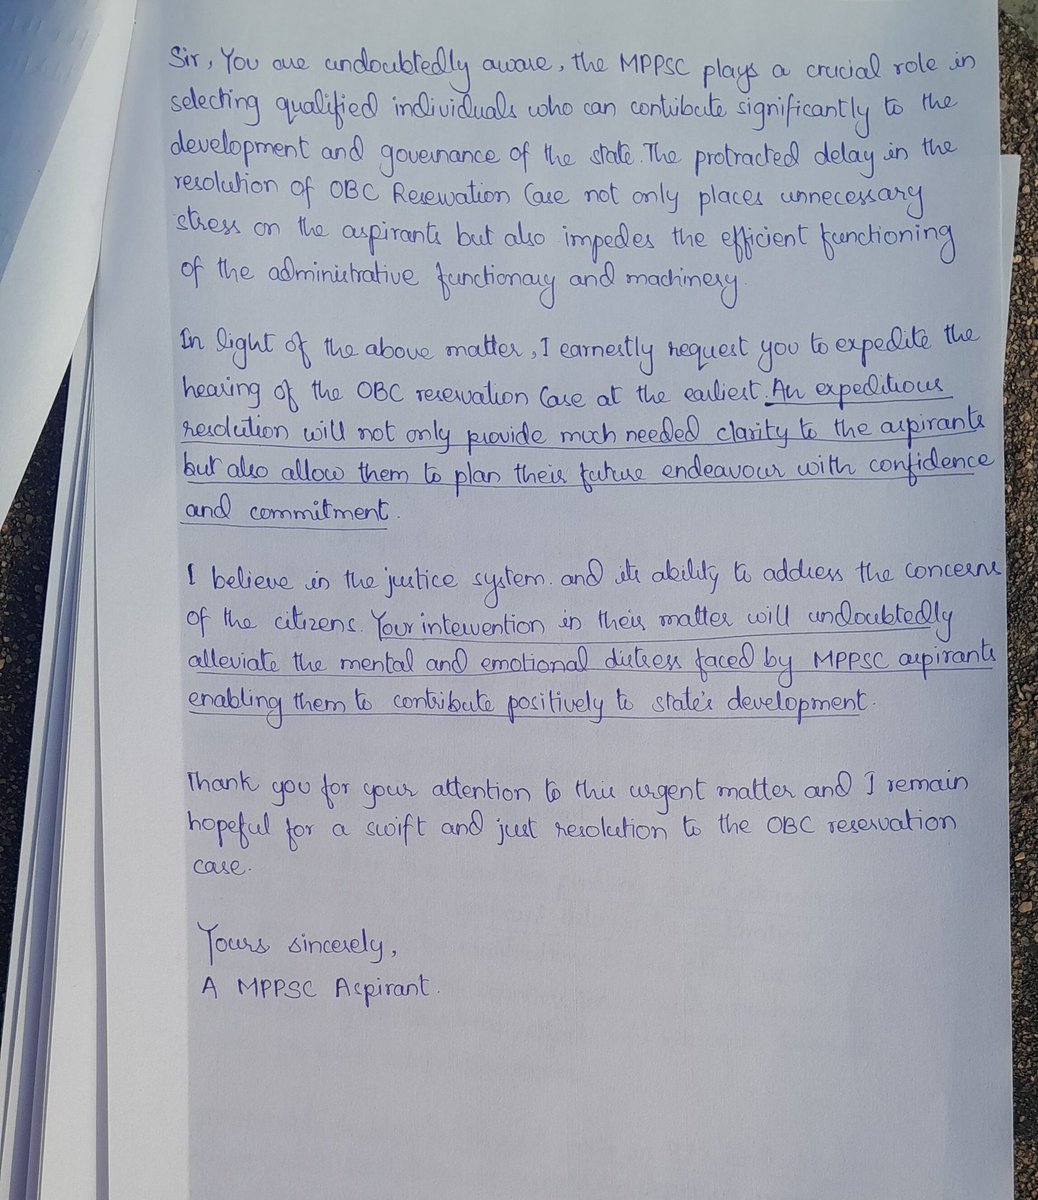 Sir, You are undoubtedly aware, the MPPSC plays a crucial role in
selecting qualified individuals who can contribute significantly to the
development and governance of the state. The protracted delay in the
resolution of OBC Reservation Case not only places unnecessary
stress on the aspirants but also impedes the efficient functioning
of the administrative functionary and machinery.
In light of the above matter, I earnestly request you to expedite the
hearing of the OBC reservation Case at the earliest. An expeditious
resolution will not only provide much needed clarity to the aspirants
but also allow them to plan their future endeavour with confidence
and commitment.
I believe in the justice system. and its ability to address the concerns
of the citizens. Your intervention in their matter will undoubtedly
alleviate the mental and emotional distress faced by MPPSC aspirants
enabling them to contribute positively to state's development.
Thank you for your attention to this urgent matter and I remain
hopeful for a swift and just resolution to the OBC reservation
case.
Yours sincerely,
A MPPSC Aspirant.